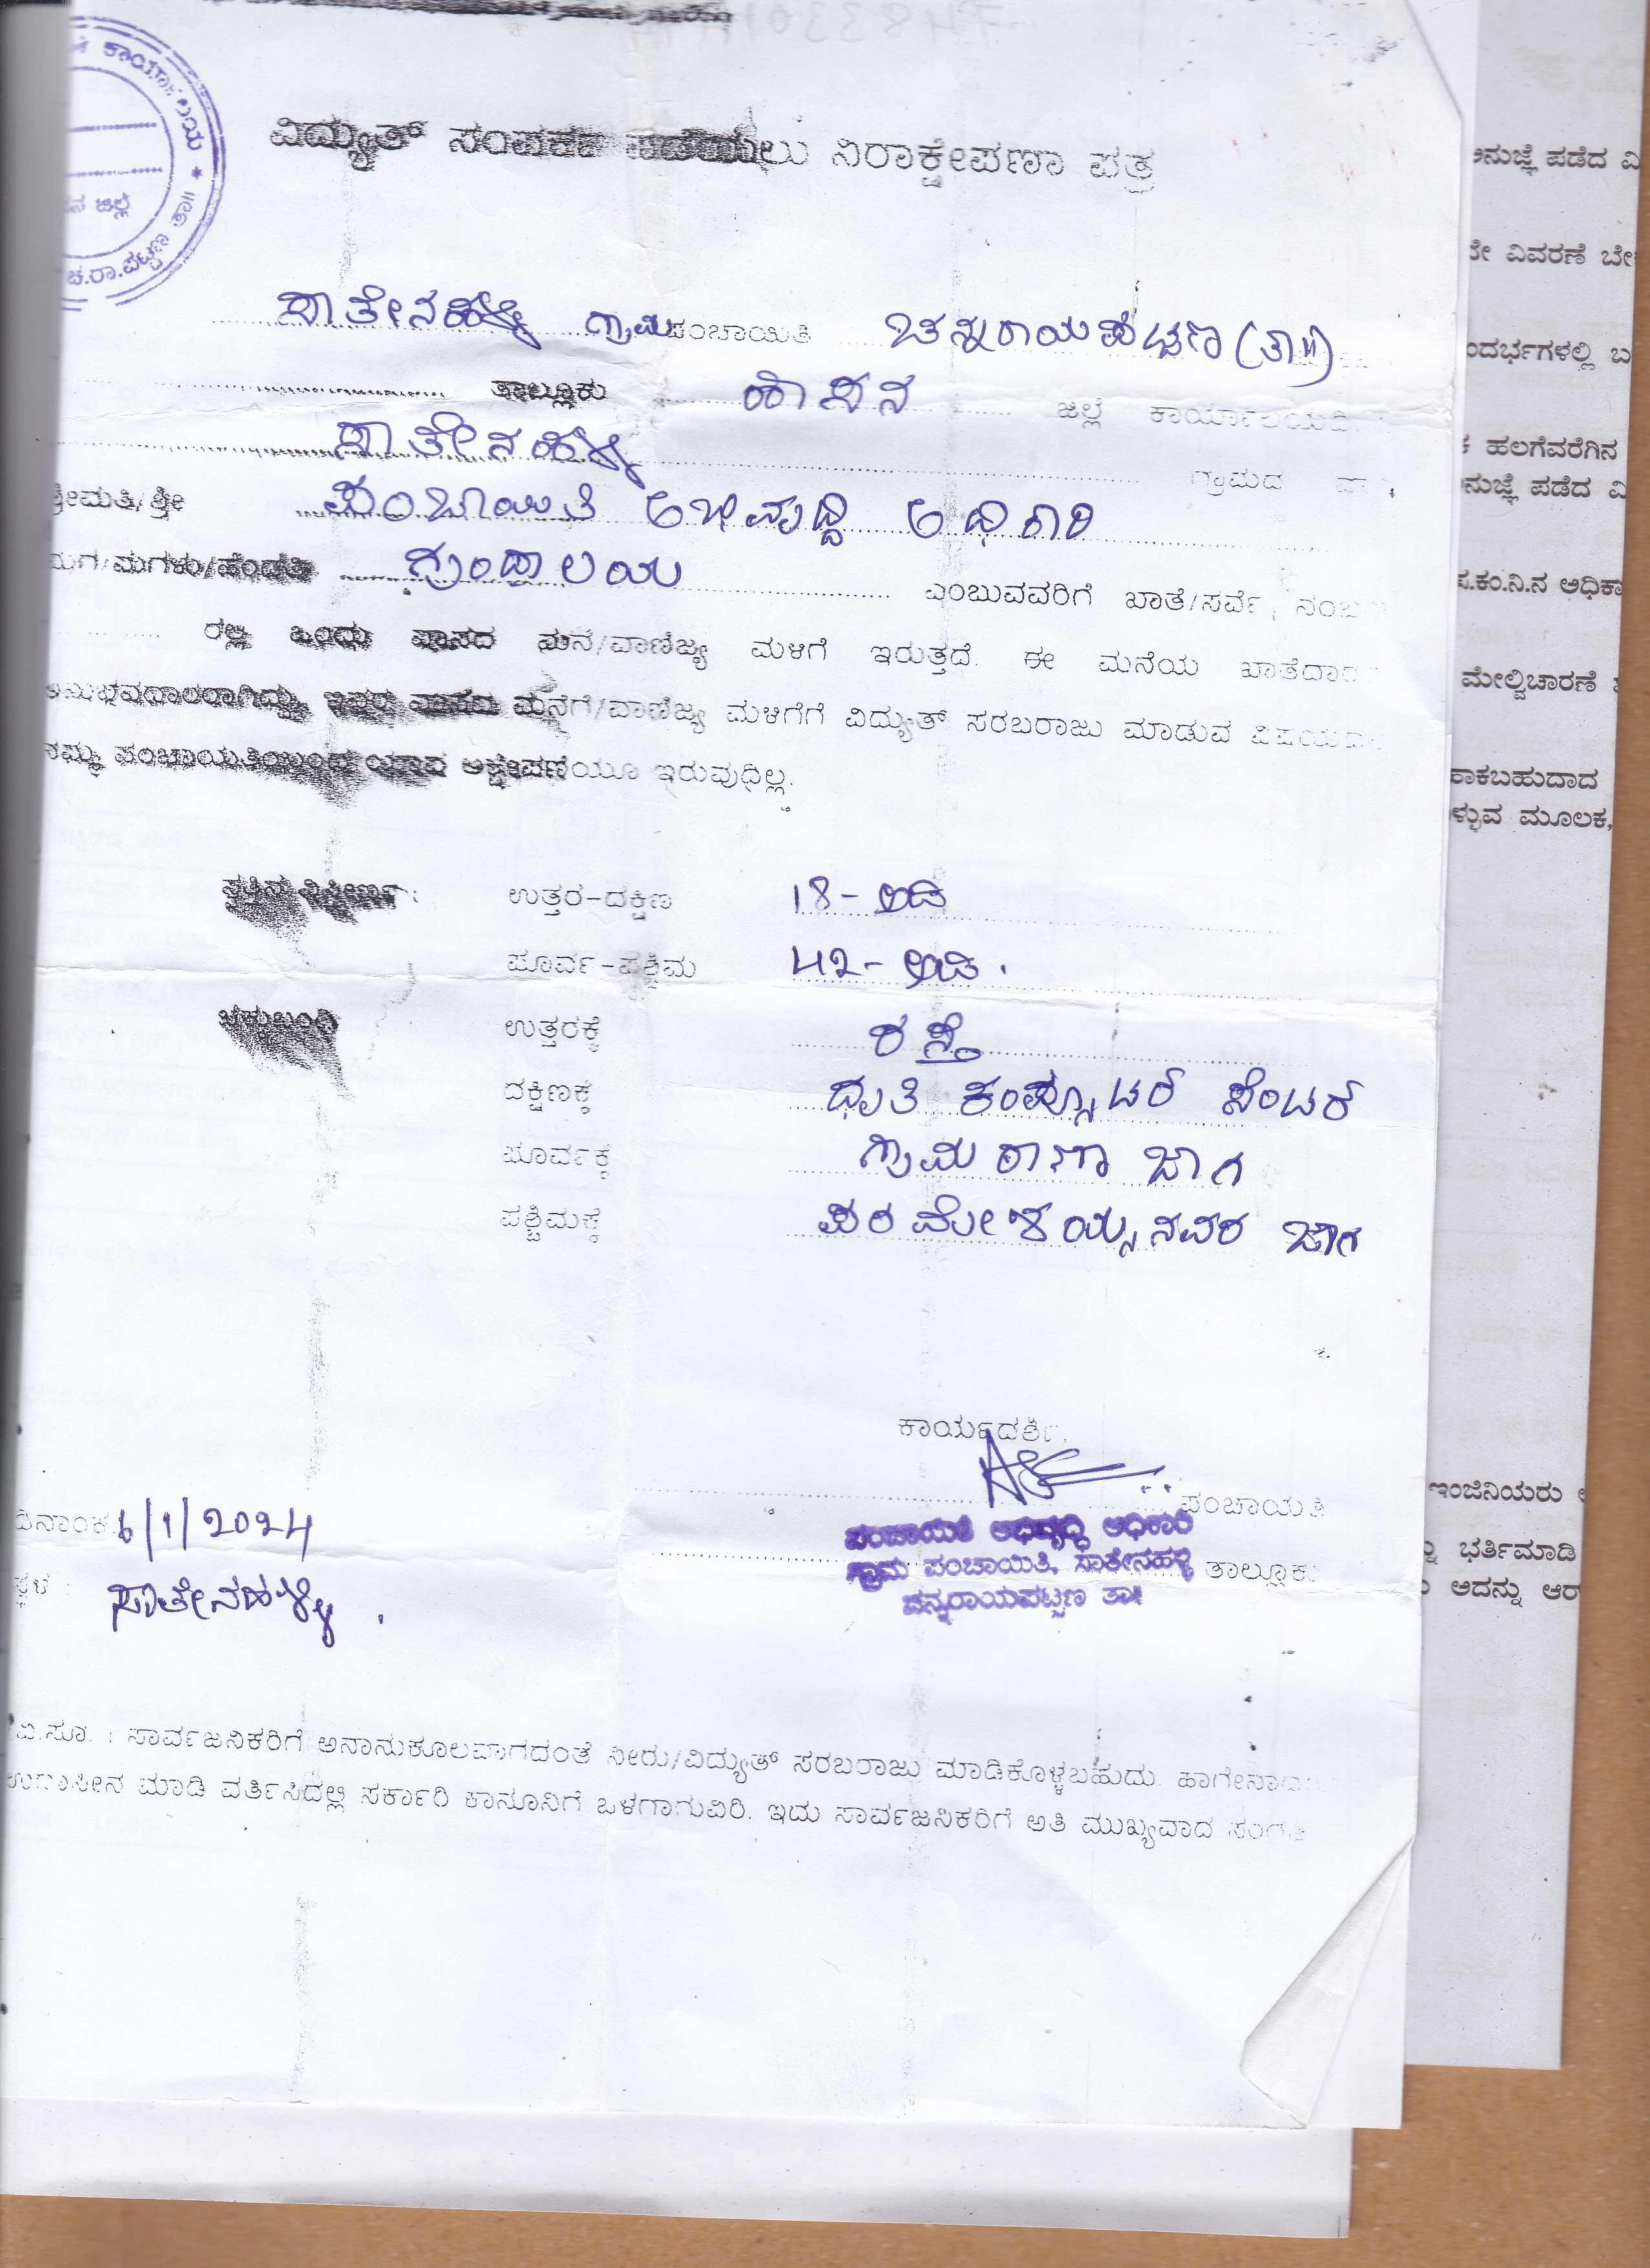 ಕಾರ್ಯಾಲಯ * ಚ.ರಾ.ಪಟ್ಟಣ ತಾ||
ಜಿಲ್ಲೆ
ವಿದ್ಯುತ್ ಸಂಪರ್ಕ ಪಡೆಯಲು ನಿರಾಕ್ಷೇಪಣಾ ಪತ್ರ
ಸಾತೇನಹಳ್ಳಿ ಗ್ರಾಮ ಪಂಚಾಯಿತಿ ಚನ್ನರಾಯಪಟ್ಟಣ (ತಾ||)
ತಾಲ್ಲೂಕು ಹಾಸನ ಜಿಲ್ಲೆ ಕಾರ್ಯಾಲಯದಿ
ಸಾತೇನಹಳ್ಳಿ ಗ್ರಾಮದ
ಶ್ರೀಮತಿ/ಶ್ರೀ ಪಂಚಾಯಿತಿ ಅಭಿವೃದ್ಧಿ ಅಧಿಕಾರಿ
ಮಗ/ಮಗಳು/ಹೆಂಡತಿ ಗ್ರಂಥಾಲಯ ಎಂಬುವವರಿಗೆ ಖಾತೆ/ಸರ್ವೆ ನಂಬ
ರಲ್ಲಿ ಒಂದು ವಾಸದ ಮನೆ/ವಾಣಿಜ್ಯ ಮಳಿಗೆ ಇರುತ್ತದೆ. ಈ ಮನೆಯ ಖಾತೆದಾರ
ಅನುಭವದಾರರಾಗಿದ್ದು, ಇವರ ವಾಸದ ಮನೆಗೆ/ವಾಣಿಜ್ಯ ಮಳಿಗೆಗೆ ವಿದ್ಯುತ್ ಸರಬರಾಜು ಮಾಡುವ ವಿಷಯದ
ನಮ್ಮ ಪಂಚಾಯತಿಯಿಂದ ಯಾವ ಆಕ್ಷೇಪಣೆಯೂ ಇರುವುದಿಲ್ಲ.
ಉತ್ತರ-ದಕ್ಷಿಣ 18- ಅಡಿ
ಪೂರ್ವ-ಪಶ್ಚಿಮ 42- ಅಡಿ.
ಚಕ್ಕುಬಂದಿ ಉತ್ತರಕ್ಕೆ ರಸ್ತೆ
ದಕ್ಷಿಣಕ್ಕೆ ಧೃತಿ ಕಂಪ್ಯೂಟರ್ ಸೆಂಟರ್
ಪೂರ್ವಕ್ಕೆ ಗ್ರಾಮಠಾಣಾ ಜಾಗ
ಪಶ್ಚಿಮಕ್ಕೆ ಪರಮೇಶಯ್ಯನವರ ಜಾಗ
ಕಾರ್ಯದರ್ಶಿ,
ಪಂಚಾಯತಿ
ದಿನಾಂಕ 6/1/2024
ಪಂಚಾಯತಿ ಅಭಿವೃದ್ಧಿ ಅಧಿಕಾರಿ
ಗ್ರಾಮ ಪಂಚಾಯಿತಿ, ಸಾತೇನಹಳ್ಳಿ ತಾಲ್ಲೂಕು
ಚನ್ನರಾಯಪಟ್ಟಣ ತಾ||
ಸ್ಥಳ : ಸಾತೇನಹಳ್ಳಿ.
ವಿ.ಸೂ. : ಸಾರ್ವಜನಿಕರಿಗೆ ಅನಾನುಕೂಲವಾಗದಂತೆ ನೀರು/ವಿದ್ಯುತ್ ಸರಬರಾಜು ಮಾಡಿಕೊಳ್ಳಬಹುದು. ಹಾಗೇನಾದ
ಉದಾಸೀನ ಮಾಡಿ ವರ್ತಿಸಿದಲ್ಲಿ ಸರ್ಕಾರಿ ಕಾನೂನಿಗೆ ಒಳಗಾಗುವಿರಿ. ಇದು ಸಾರ್ವಜನಿಕರಿಗೆ ಅತಿ ಮುಖ್ಯವಾದ ಸಂಗತಿ
ಅನುಜ್ಞೆ ಪಡೆದ ವಿ
ವಿವರಣೆ ಬೇ
ಂದರ್ಭಗಳಲ್ಲಿ ಬ
ಹಲಗೆವರೆಗಿನ
ನುಜ್ಞೆ ಪಡೆದ ವಿ
ಪ.ಕಂ.ನಿ.ನ ಅಧಿಕಾ
ಮೇಲ್ವಿಚಾರಣೆ
ಹಾಕಬಹುದಾದ
ಳ್ಳುವ ಮೂಲಕ,
ಇಂಜಿನಿಯರು
ಭರ್ತಿಮಾಡಿ
ಅದನ್ನು ಆರ